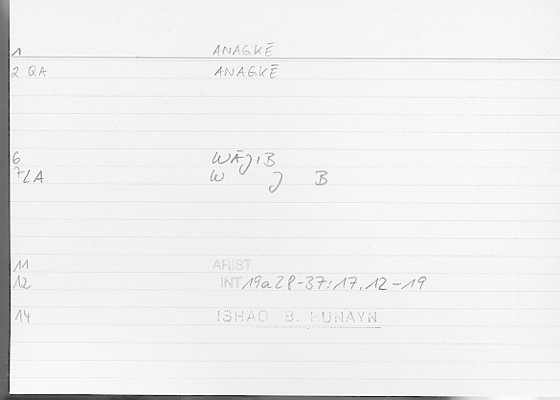 1 ANAGKĒ
2 QA ANAGKĒ
6 WĀJIB
7LA W J B
11 ARIST
12 INT 19a28-37:17,12-19
14 ISHAO B. HUNAYN